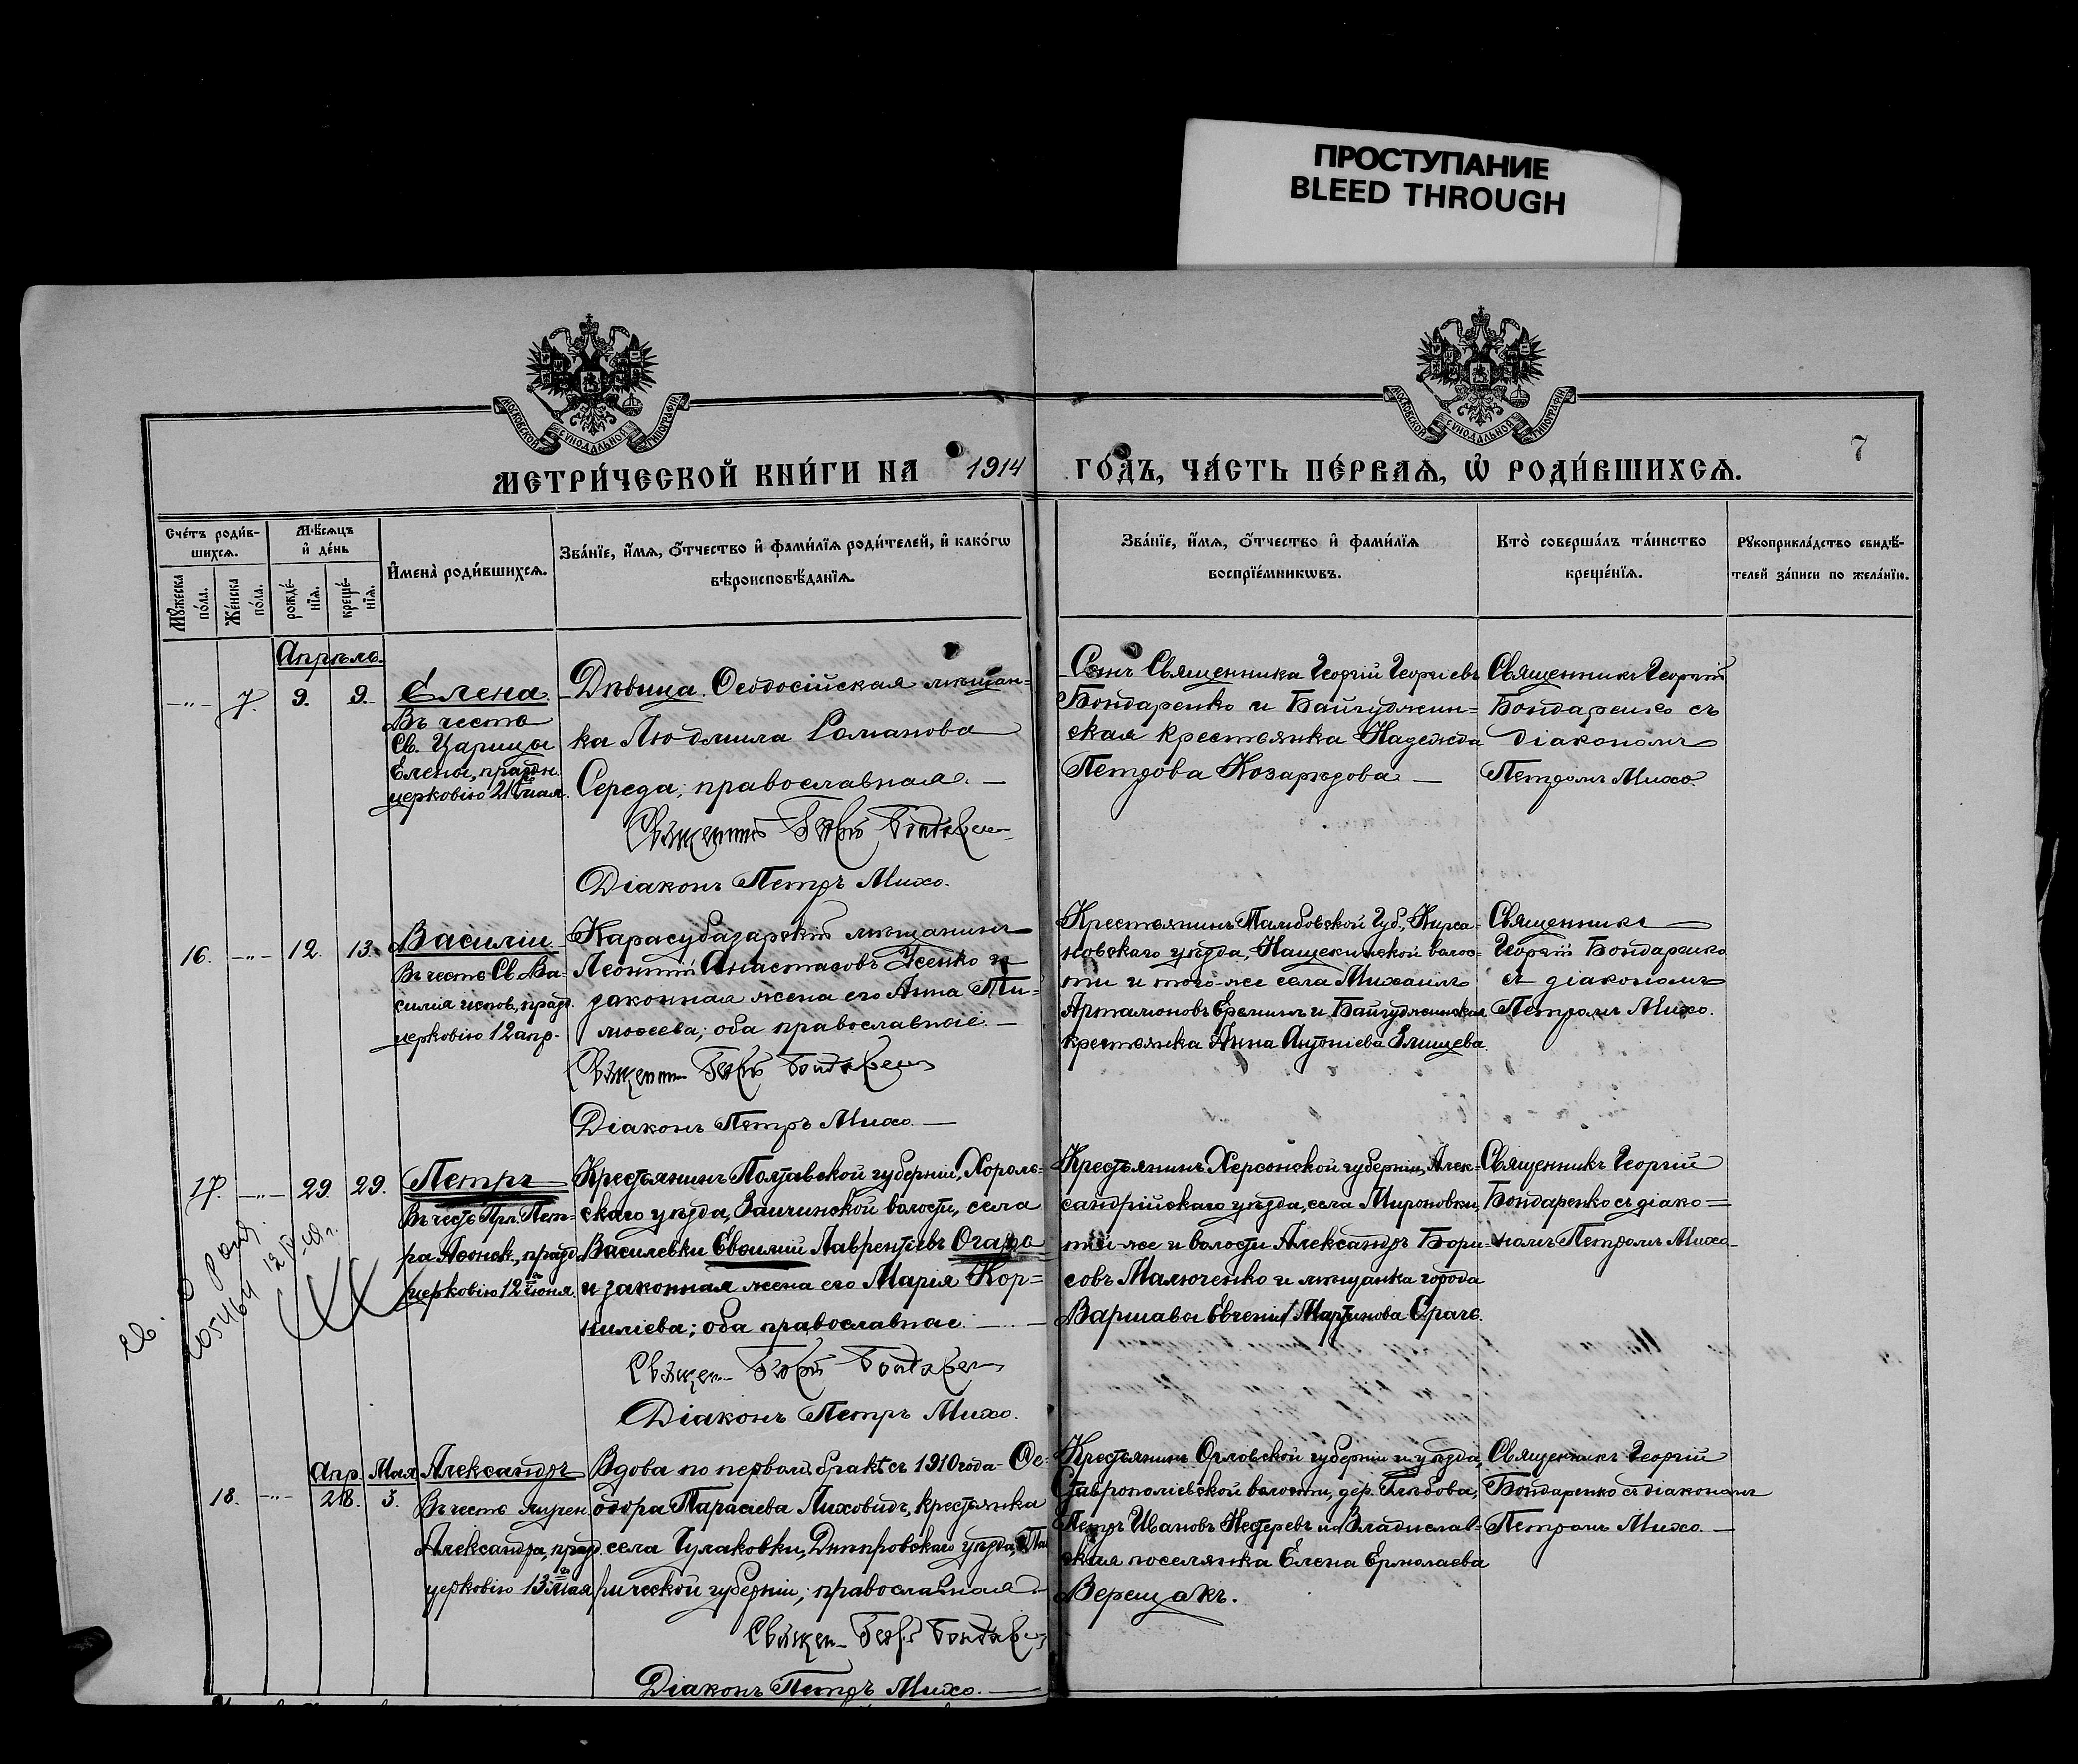 ПРОСТУПАНИЕ
BLEED THROUGH
МОСКОВСКОЙ СѴНОДАЛЬНОЙ ТИПОГРАФІИ
МОСКОВСКОЙ СѴНОДАЛЬНОЙ ТИПОГРАФІИ
7
МЕТРИ́ЧЕСКОЙ КНИ́ГИ НА 1914 ГО́ДЪ, ЧА́СТЬ ПЕ́РВАѦ, Ѽ РОДИ́ВШИХСѦ.
Сче́тъ роди́в-
шихсѧ.
Мꙋ́жеска по́ла.
Же́нска по́ла.
Мѣ́сѧцъ
и҆ де́нь
рожде́-
нїѧ.
креще́-
нїѧ.
И҆мена̀ роди́вшихсѧ.
Зва́нїе, и҆́мѧ, ѻ҆́тчество и҆ фами́лїѧ роди́телей, и҆ како́гѡ
вѣроисповѣ́данїѧ.
Зва́нїе, и҆́мѧ, ѻ҆́тчество и҆ фами́лїѧ
воспрїе́мникѡвъ.
Кто̀ соверша́лъ та́инство
креще́нїѧ.
Рꙋкоприкла́дство свидѣ́-
телей за́писи по жела́нїю.
Апрѣль.
-"- 7. 9. 9.
Елена
Въ честь
Св. Царицы
Елены, праздн.
церковію 21го мая.
Дѣвица. Ѳеодосійская мѣщан-
ка Людмила Романова
Середа; православная. —
Священникъ Георгій Бондаренко
Діаконъ Петръ Михо.
Сынъ Священника Георгій Георгіевъ
Бондаренко и Байгуджин-
ская крестьянка Надежда
Петрова Козаредова —
Священникъ Георгій
Бондаренко съ
діакономъ
Петромъ Михо.
16. -"- 12. 13.
Василій
Въ честь Св. Ва-
силія испов., празд.
церковію 12 апр.
Карасубазарскій мѣщанинъ
Леонтій Анастасовъ Усенко и
законная жена его Анна Ти-
моѳеева; оба православные. —
Священникъ Георгій Бондаренко
Діаконъ Петръ Михо. —
Крестьянинъ Тамбовской Губ., Кирса-
новскаго уѣзда, Нащекинской волос-
ти и того-же села Михаилъ
Артамоновъ Ереминъ и Байгуджинская
крестьянка Анна Антоніева Елищева.
Священникъ
Георгій Бондаренко
съ діакономъ
Петромъ Михо.
17. -"- 29. 29.
Петръ
Въ честь Прп. Пет-
ра Аѳонск., празд.
церковію 12го іюня.
Крестьянинъ Полтавской губерніи, Хороль-
скаго уѣзда, Заичинской волости, села
Василевки Евѳимій Лаврентіевъ Огарь
и законная жена его Марія Кор=
ниліева; оба православные. —
Священ. Георгій Бондаренко
Діаконъ Петръ Михо.
Крестьянинъ Херсонской губерніи, Алек-
сандрійскаго уѣзда, села Мироновки,
той-же и волости Александръ Бори-
совъ Малюченко и мѣщанка города
Варшавы Евгенія Мартинова Сраге.
Священникъ Георгій
Бондаренко съ діако=
номъ Петромъ Михо
18. -"- Апр. 28. Мая 3.
Александръ
Въ честь мучен.
Александра, празд.
церковію 13го Мая
Вдова по первомъ бракѣ съ 1910 года Ѳе-
одора Тарасіева Лиховидъ, крестьянка
села Чулаковки, Днѣпровскаго уѣзда, Тав-
рической губерніи; православная. —
Священ. Георгій Бондаренко
Діаконъ Петръ Михо. —
Крестьянинъ Орловской губерніи и уѣзда,
Ставрополіевской волости, дер. Глѣбова,
Петръ Ивановъ Нестеревъ и Владислав-
ская поселянка Елена Ермолаева
Верещакъ.
Священникъ Георгій
Бондаренко съ діакономъ
Петромъ Михо. —